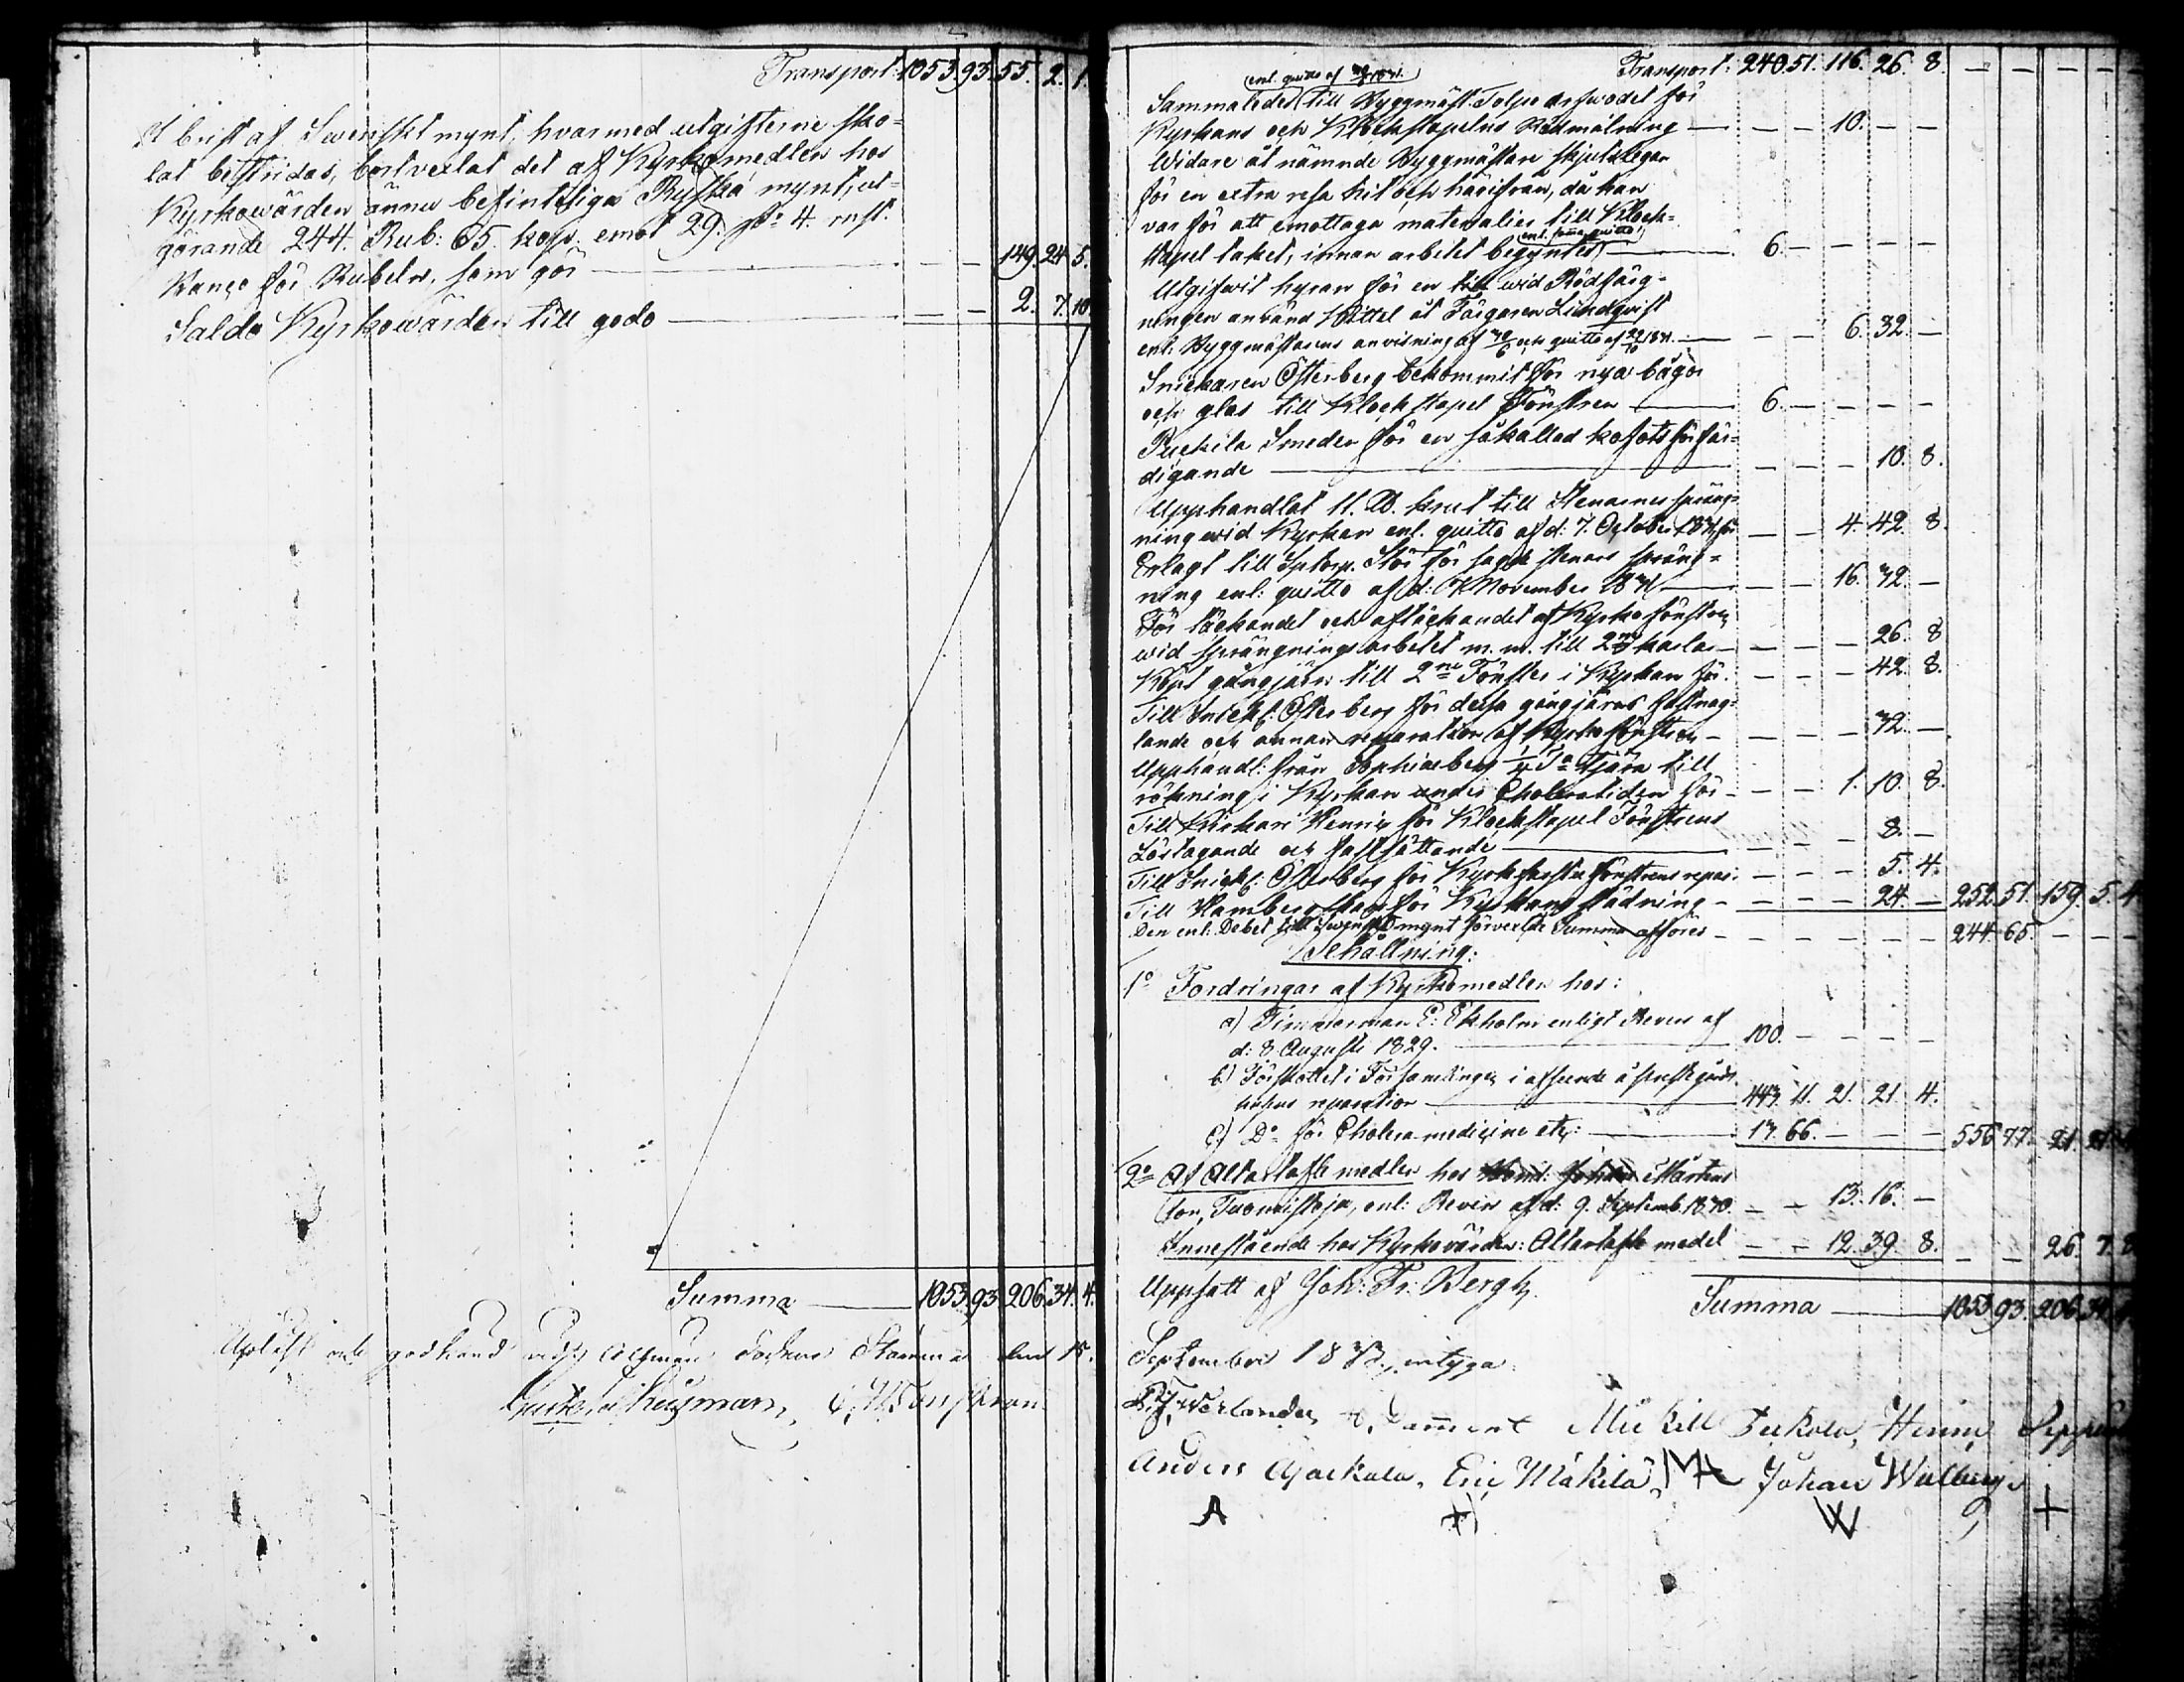 Transport: 1053. 93. 55. 2. 1.
I brist af Swenskt mynt, hvarmed utgifterne sko-
lat bestridas, bortvexlat det af Kyrkomedlen hos
Kyrkowärden ännu befinteliga Ryska mynt, ut-
görande 244. Rub: 65. kop. emot 29. s:o 4. rst.
Banco för Rubeln, som gör — — — 149. 24. 5.
Saldo Kyrkowärden till godo — — — 2. 7. 10
Summa — 1053. 93. 206. 34. 4.
Upläst och godkänd vid Allmän Sockne Stämma den 15.
Transport: 240. 51. 116. 26. 8. — — — — —
enl. quitto af
Sammaledes till Byggmäst. Tolpo arfwodet för
Kyrkans och Klockstapelns Rödmålning — — — 10. — —
Widare åt nämnde Byggmästare skjutslegan
för en extra resa hit och härifrån, då han
var för att emottaga materialier till Klock-
enl. samma quitto
stapel taket, innan arbetet begyntes — 6. — — — —
Utgifwit hyran för en till wid Rödfärg-
ningen använd Kittel åt Färgaren Lindqvist
enl. Byggmästarens anvisning af och quitto af — — — 6. 32. —
Snickaren Österberg bekommit för nya bågor
och glas till Klockstapel Fönstren — 6. — — — —
Smeden för en såkallad kofots förfär-
digande — — — — 10. 8.
Upphandlat 11. krut till Stenarnes spräng-
ning wid Kyrkan enl. quitto af d: 7. October — — 4. 42. 8.
Erlagt till Stör för sagde stenars spräng-
ning enl: quitto af d: November — — 16. 32. —
För täckandet och aftäckandet af Kyrkofönstren
wid sprängningsarbetet m. m. till 2ne karlar — — — — 26. 8
Köpt gångjärn till 2ne Fönster i Kyrkan för. — — — 42. 8.
Till Snick: Österberg för dessa gångjärns fastnag-
lande och annan reparation af Kyrkofönstren — — — — 32. —
Upphandl: från tjära till
rökning i Kyrkan under Choleratiden för — — — 1. 10. 8.
Till Henric för Klockstapel Fönstrens
Löstagande och fastsättande — — — — 8. —
Till Snick: Österberg för fönstrens repar. — — — 5. 4.
Till Hamberg för Kyrkans städning — — — — 24. — 252. 51. 159. 5. 4
Den enl. Debet till Swenskt mynt förvexlte Summa afföres — — — — — — 244. 65. — — —
Behållning:
1o Fordringar af Kyrkomedlen hos:
a) Timmerman E: Ekholm enligt Revers af
d: 8 Augusti 1829. — 100. — — — —
b) Förskottet i Församlingen i afseende å prestgårds
reparation — 443. 11. 21. 21. 4.
c) Do för Cholera medicine etc: — 13. 66. — — — 556. 77. 21. 21.
2o Af Altartafle medlen hos Johan Mårtens
son, enl: Revers af d: 9. Septemb. 1830. — — 13. 16. —
Innestående hos Kyrkovärden: Altartafle medel — — 12. 39. 8. — — 26. 7. 8
Uppsatt af Joh: Fr: Bergh.
Summa — 1053. 93. 206. 34.
September 1833., intyga:
Anders Ajackala, Eric Mäkilä, Johan Wallberg
A + W +